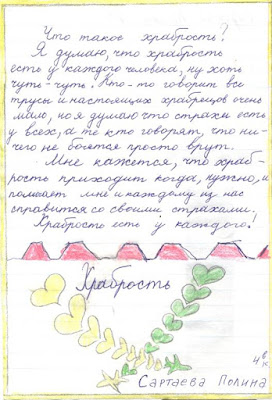 Что такое храбрость?
Я думаю, что храбрость
есть у каждого человека, ну хоть
чуть-чуть. Кто-то говорит все
трусы и настоящих храбрецов очень
мало, но я думаю что страхи есть
у всех, а те кто говорят, что ни-
чего не боятся просто врут.
Мне кажется, что храб-
рость приходит когда, нужно, и
помогает мне и каждому из нас
справится со своими страхами!
Храбрость есть у каждого!
Храбрость
4 в
к
Сартаева Полина